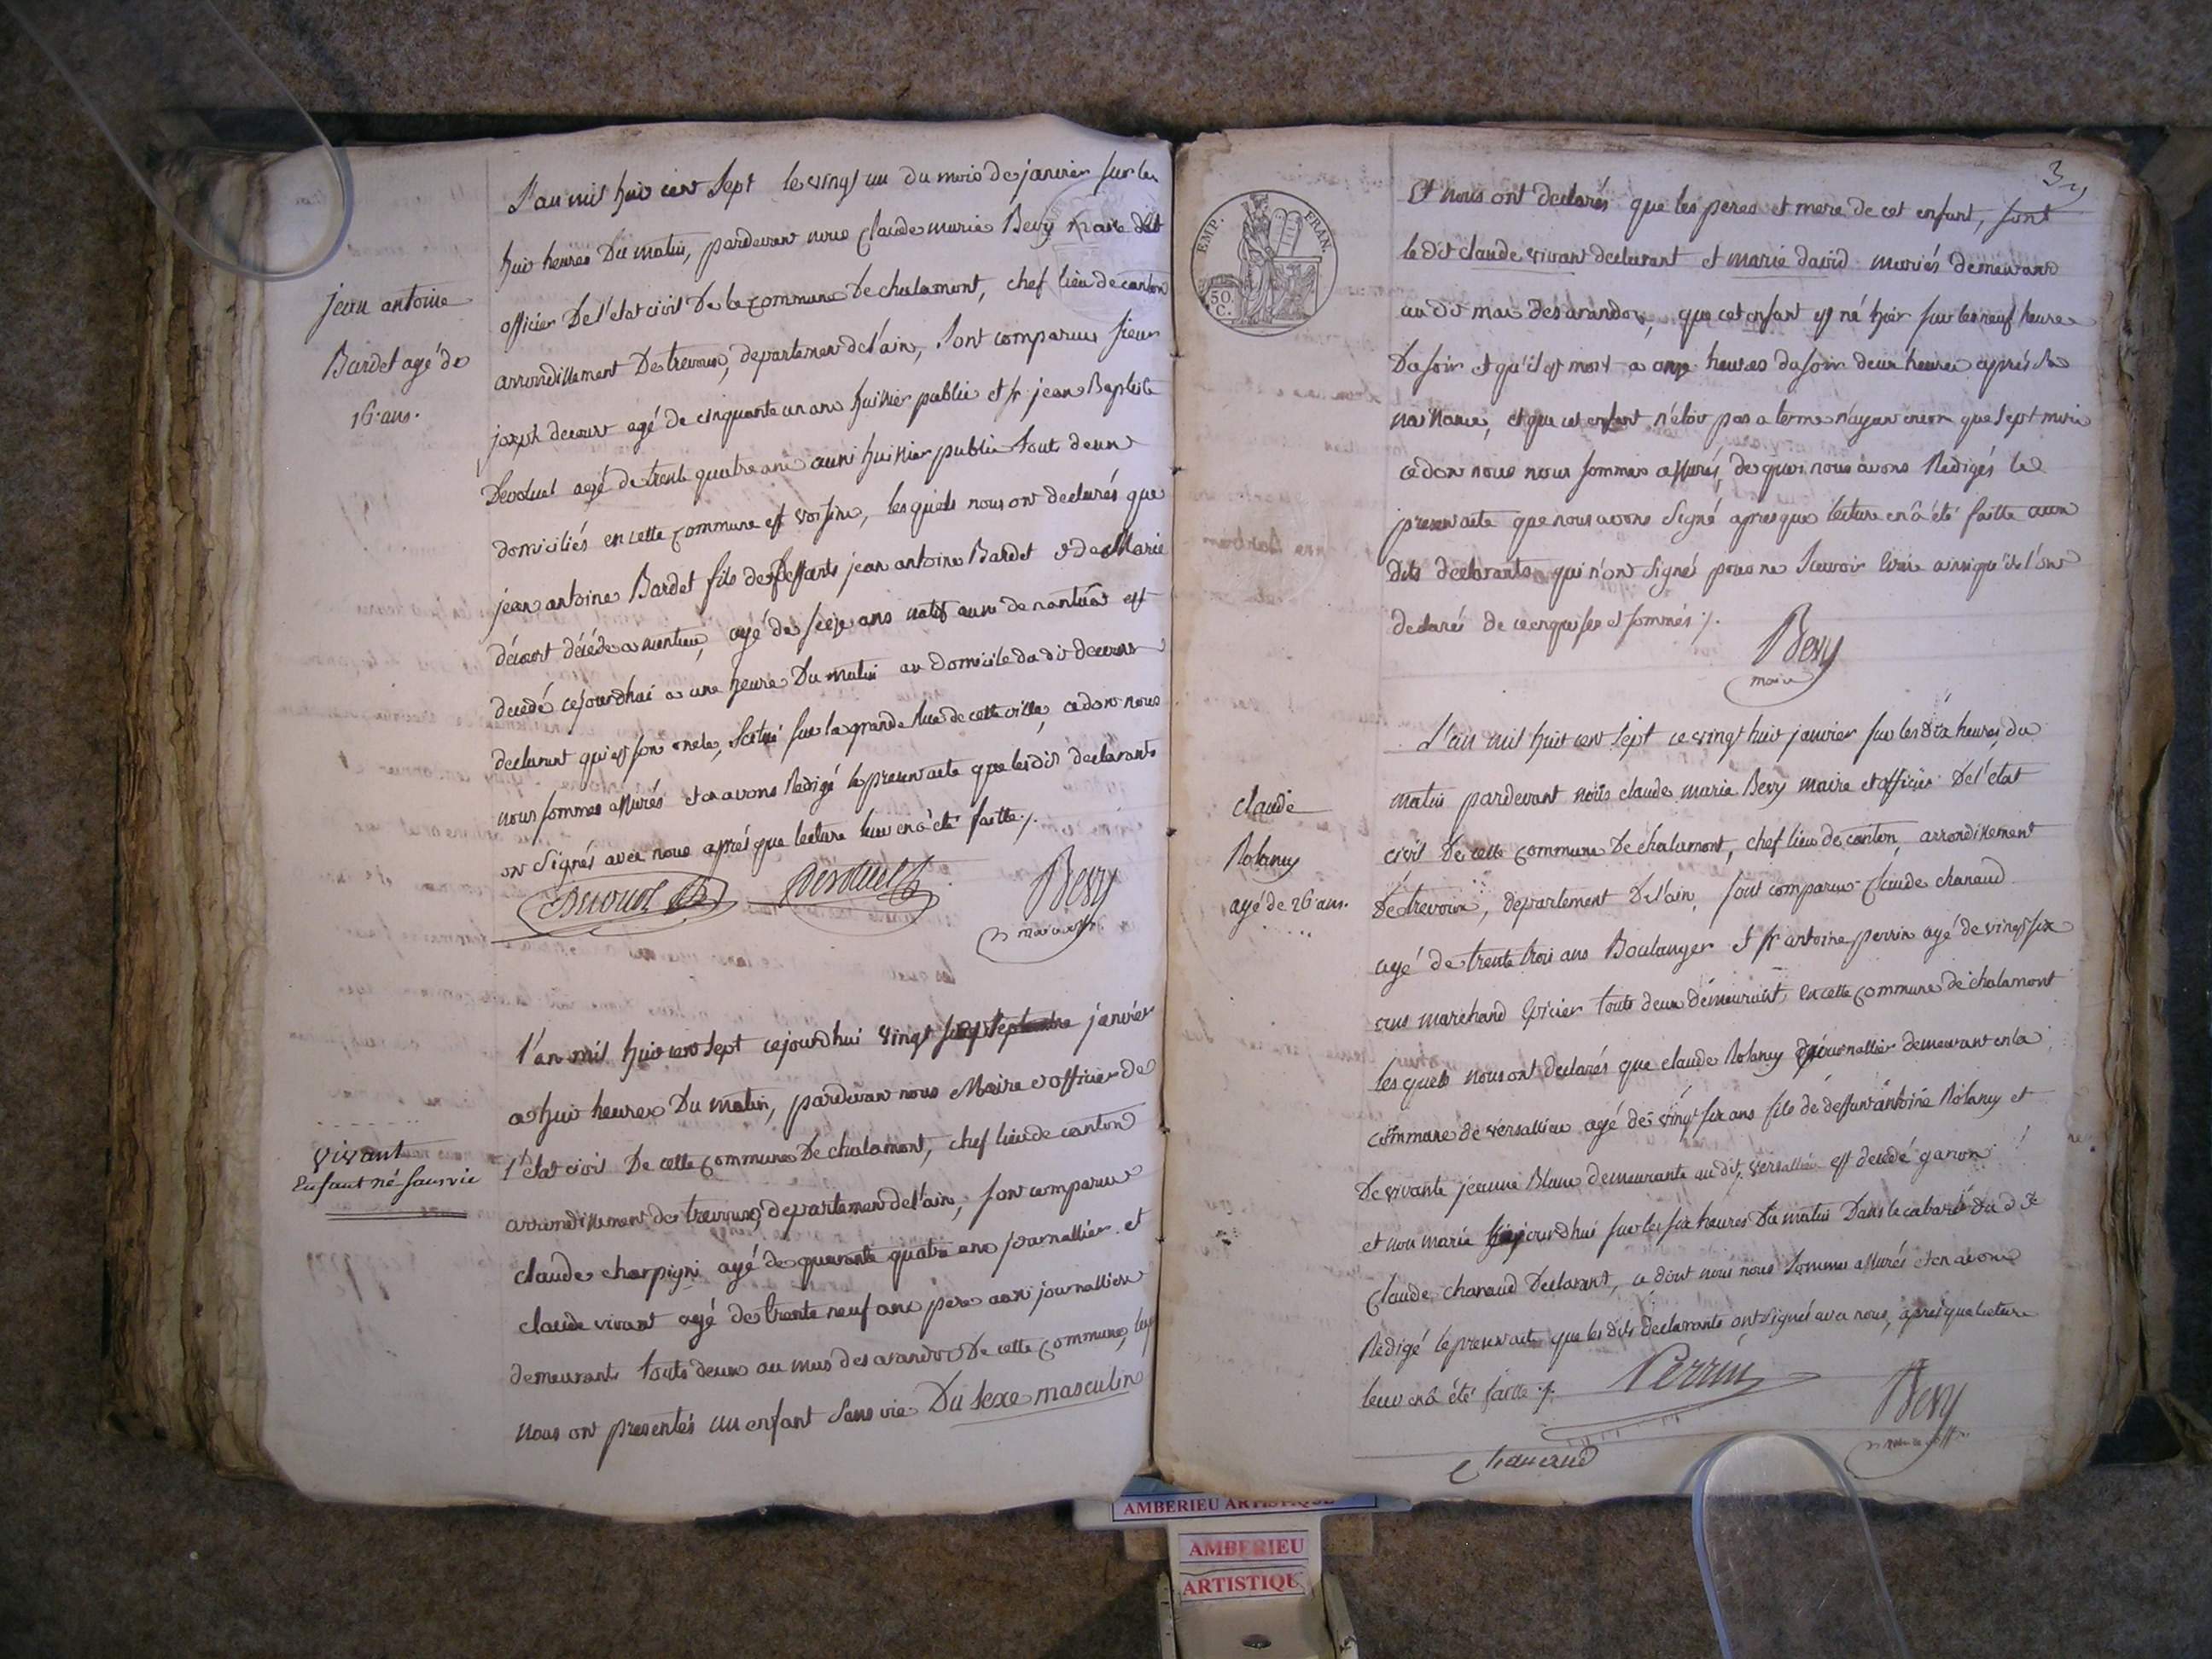 jean antoine
Bardet agé de
16 ans.
L'an mil huit cent sept le vingt un du mois de janvier sur les
huit heures Du matin, pardevant nous Claude marie Bevy maire et
officier De l'etat civil De la commune De chalamont, chef lieu de canton
arrondissement De trevoux, departement de l'ain, sont comparus sieur
joseph decourt agé de cinquante un ans huissier public et sr jean Baptiste
Devoluet agé de trente quatre ans aussi huissier public tout deux
domiciliés en cette commune et voisins, les quels nous ont declarés que
jean antoine Bardet fils de deffants jean antoine Bardet et de Marie
décourt décédée a nantua, agé de seize ans natif aussi de nantua est
decedé cejourdhui a une heure Du matin au domicile du dit decourt
declarant qui est son oncle, scitué sur la grande Rue de cette ville, ce dont nous
nous sommes assurés et en avons Redigé le present acte que les dits declarants
ont signés avec nous aprés que lecture leur en à été faitte ./.
Devoluet
Bevy
maire et off.
vivant
Enfant né sans vie
l'an mil huit cent sept cejourdhui vingt sept septembre janvier
a huit heures Du matin, pardevant nous Maire et officier de
l'état civil De cette commune De chalamont, chef lieu de canton
arrondissement de trevoux, departement de l'ain, sont comparus
claude charpigni agé de quarante quatre ans journallier et
claude vivant agé de trente neuf ans pere aussi journalliers
demeurants touts deux au mas des arandon De cette commune, les
nous ont presentés un enfant sans vie Du sexe masculin
3
EMP. FRAN.
50. C.
Et nous ont declarés que les peres et mere de cet enfant, sont
le dit claude vivant declarant et marie david mariés demeurants
au dit mas des arandon, que cet enfant est né hier sur les neuf heures
Du soir et qu'il est mort a onze heures du soir deux heures aprés sa
naissance, et que cet enfant n'étoit pas a terme n'ayant encore que sept mois
ce dont nous nous sommes assurés, de quoi nous avons Redigés le
present acte que nous avons signé apres que lecture en à été faitte aux
dits declarants qui n'ont signés pour ne scavoir écrire ainsi qu'ils l'ont
declarés de ce enquis et sommés ./.
Bevy
maire
claude
Rolancy
agé de 26 ans.
L'an mil huit cent sept ce vingt huit janvier sur les dix heures du
matin pardevant nous claude marie Bevy maire et officier De l'état
civil De cette commune De chalamont, chef lieu de canton, arrondissement
De trevoux, departement De l'ain, sont comparus Claude chanaud
agé de trente trois ans Boulanger et sr antoine perrin agé de vingt six
ans marchand Epicier touts deux demeurants, en cette commune de chalamont
les quels nous ont declarés que claude Rolancy journallier demeurant en la
commune de versallieu agé de vingt six ans fils de deffunt antoine Rolancy et
De vivante jeanne Blanc demeurante au dit versallieu est decedé garcon
et non marié cejourdhui sur les six heures Du matin Dans le cabaret du dit
Claude chanaud Declarant, ce dont nous nous sommes assurés et en avons
Redigé le present acte que les dits declarants ont signés avec nous, aprés que lecture
leur en à été faitte ./.
Perrin
Bevy
maire et off.
Chanaud
AMBERIEU ARTISTIQUE
AMBERIEU
ARTISTIQU